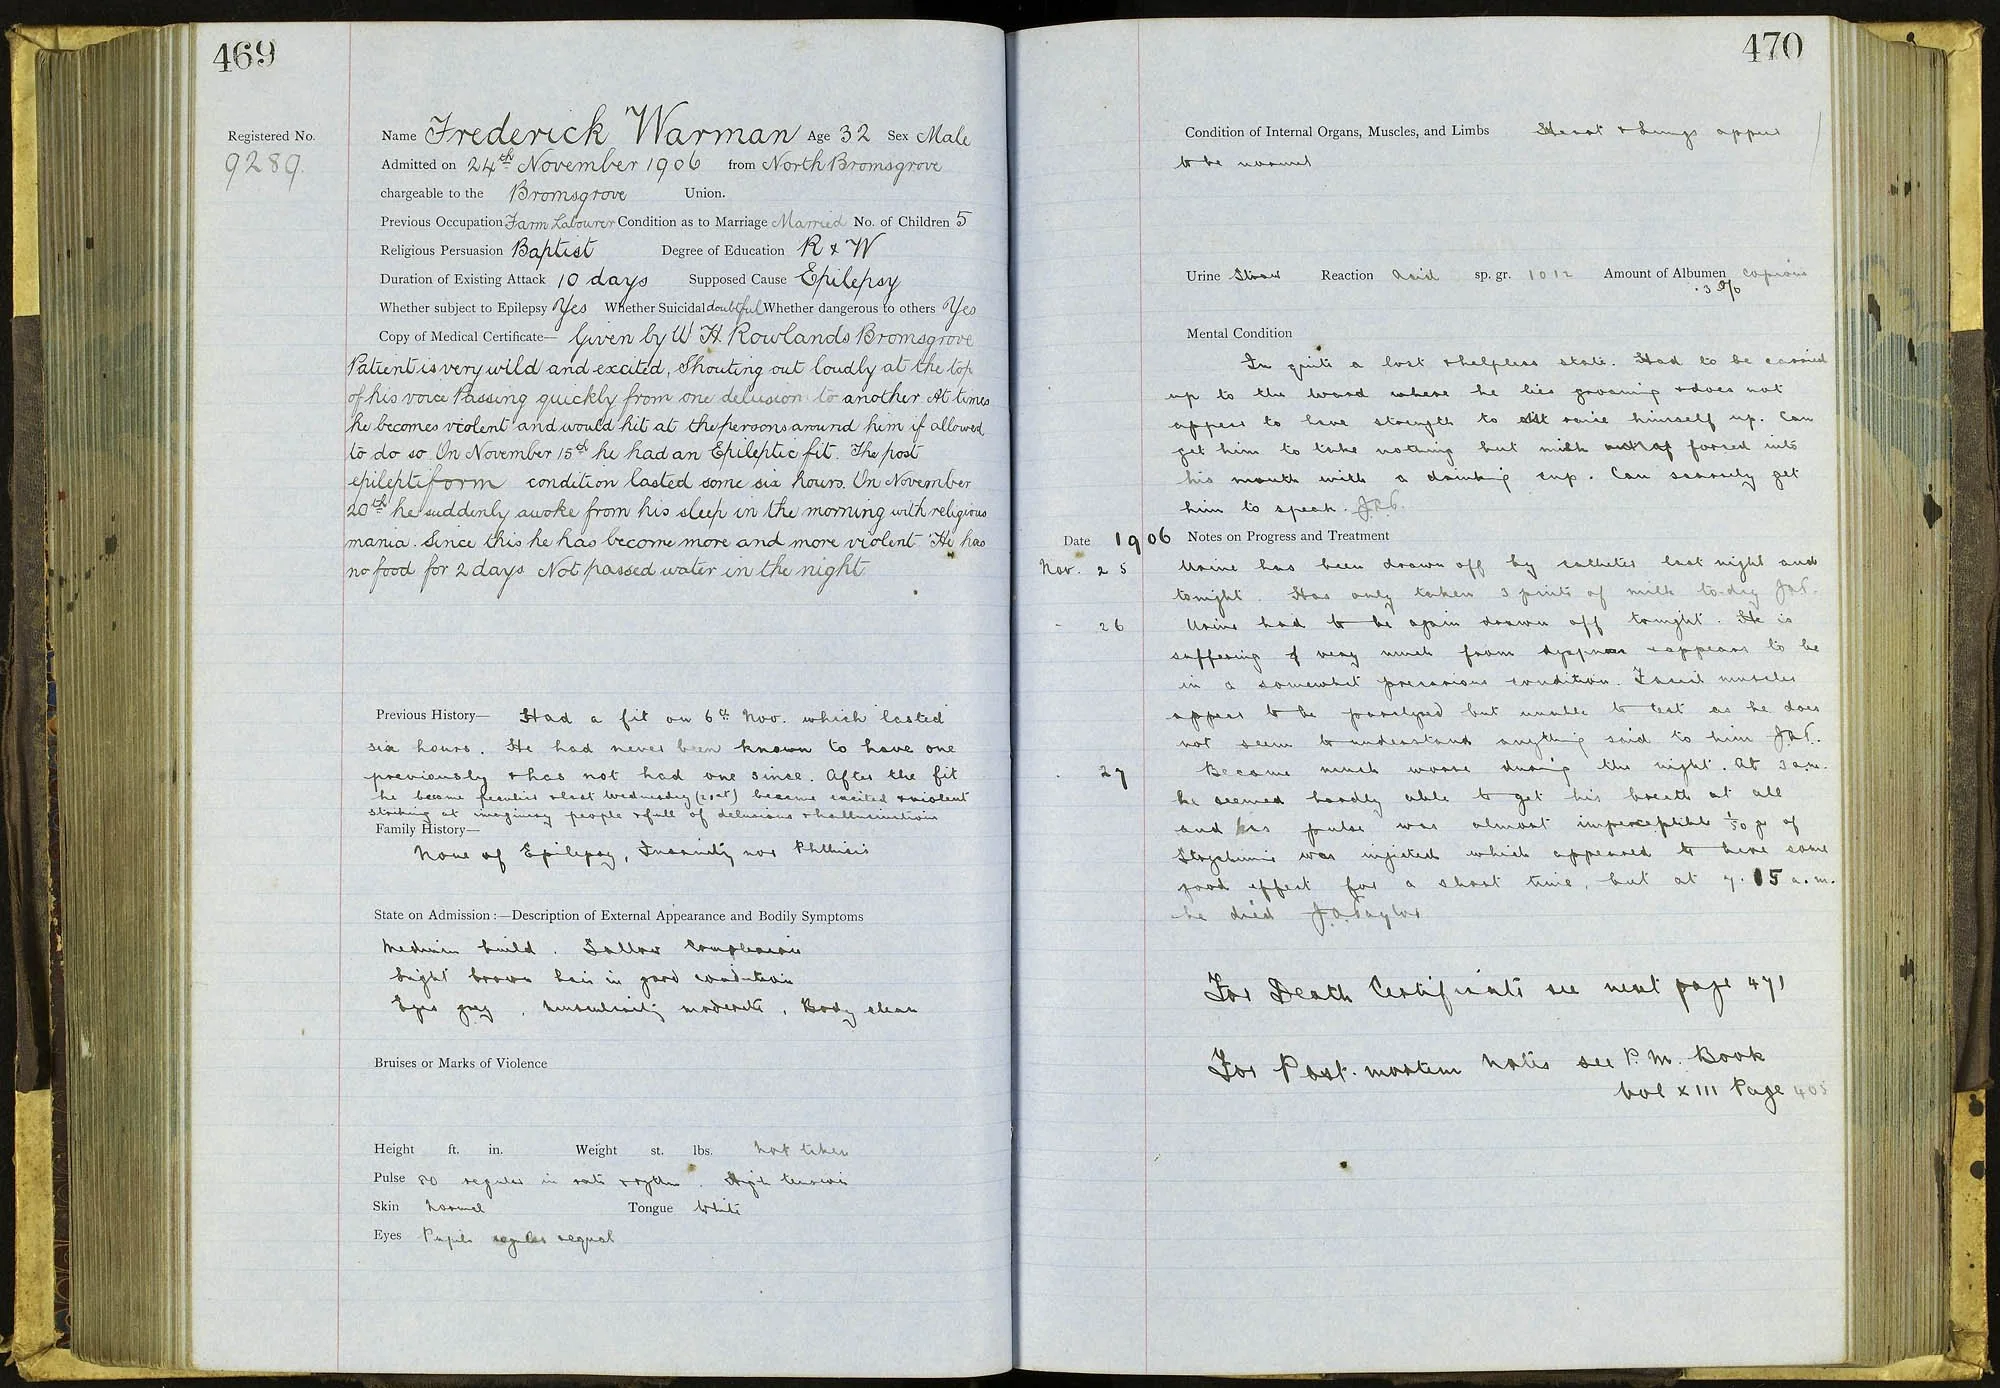 469
Registered No.
9289.
Name Frederick Warman Age 32 Sex Male
Admitted on 24th November 1906 from North Bromsgrove
chargeable to the Bromsgrove Union.
Previous Occupation Farm Labourer Condition as to Marriage Married No. of Children 5
Religious Persuasion Baptist Degree of Education R & W
Duration of Existing Attack 10 days Supposed Cause Epilepsy
Whether subject to Epilepsy Yes Whether Suicidal doubtful Whether dangerous to others Yes
Copy of Medical Certificate— Given by W H Rowlands Bromsgrove
Patient is very wild and excited, Shouting out loudly at the top
of his voice Passing quickly from one delusion to another At times
he becomes violent and would hit at the persons around him if allowed
to do so On November 15th he had an Epileptic fit. The post
epileptiform condition lasted some six hours. On November
20th he suddenly awoke from his sleep in the morning with religious
mania. Since this he has become more and more violent He has
no food for 2 days Not passed water in the night
Previous History— Had a fit on 6th Nov. which lasted
six hours. He had never been known to have one
previously & has not had one since. After the fit
he became peculiar & last Wednesday (21st) became excited & violent
striking at imaginary people & full of delusions & hallucinations
Family History—
None of Epilepsy, Insanity nor Phthisis
State on Admission :—Description of External Appearance and Bodily Symptoms
Medium build. Sallow Complexion
bright brown hair in good condition
Eyes grey, muscularity moderate, Body clean
Bruises or Marks of Violence
Height ft. in. Weight st. lbs. Not taken
Pulse 80 regular in rate & rythm. High tension
Skin Normal Tongue White
Eyes Pupils regular & equal
470
Condition of Internal Organs, Muscles, and Limbs Heart & Lungs appear
to be normal
Urine Straw Reaction Acid sp. gr. 1012 Amount of Albumen Copious
.3 %
Mental Condition
In quite a lost & helpless state. Had to be carried
up to the ward where he lies groaning & does not
appear to have strength to raise himself up. Can
get him to take nothing but milk forced into
his mouth with a drinking cup. Can scarcely get
him to speak.
Date 1906 Notes on Progress and Treatment
Nov. 25 Urine has been drawn off by catheter last night and
tonight. Has only taken 3 pints of milk to-day
- 26 Urine had to be again drawn off tonight. He is
suffering very much from dyspnoea & appears to be
in a somewhat precarious condition. Facial muscles
appear to be paralysed but unable to test as he does
not seem to understand anything said to him
. 27 Became much worse during the night. At 3 a.m.
he seemed hardly able to get his breath at all
and his pulse was almost imperceptible 1/50 gr of
Strychnine was injected which appeared to have some
good effect for a short time, but at 7.15 a.m.
he died J.A. Taylor
For Death Certificate see next page 471
For Post-mortem Notes see P.M. Book
Vol XIII Page 405